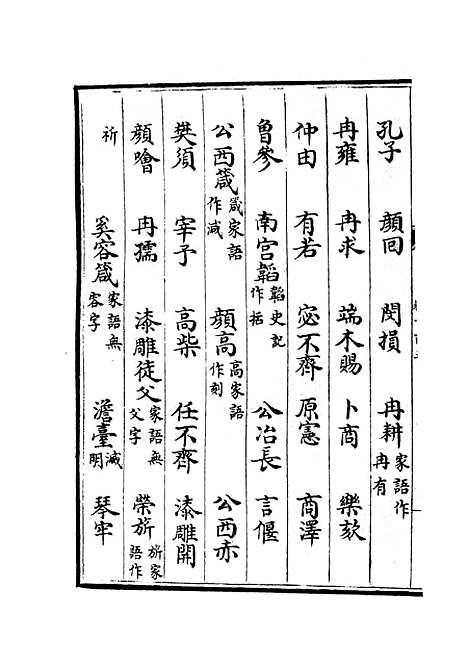 孔子 顔回 閔損 冉耕家語作冉有
冉雍 冉求 端木賜 卜商 樂欬
仲由 有若 宓不齊 原憲 商澤
曾參 南宮韜韜史記作括 公冶長 言偃
公西箴箴家語作减 顔高高家語作刻 公西赤
樊須 宰予 高柴 任不齊 漆雕開
顔噲 冉孺 漆雕徒父家語無父字 榮旂旂家語作
祈 奚容箴家語無容字 澹臺滅明 琴牢